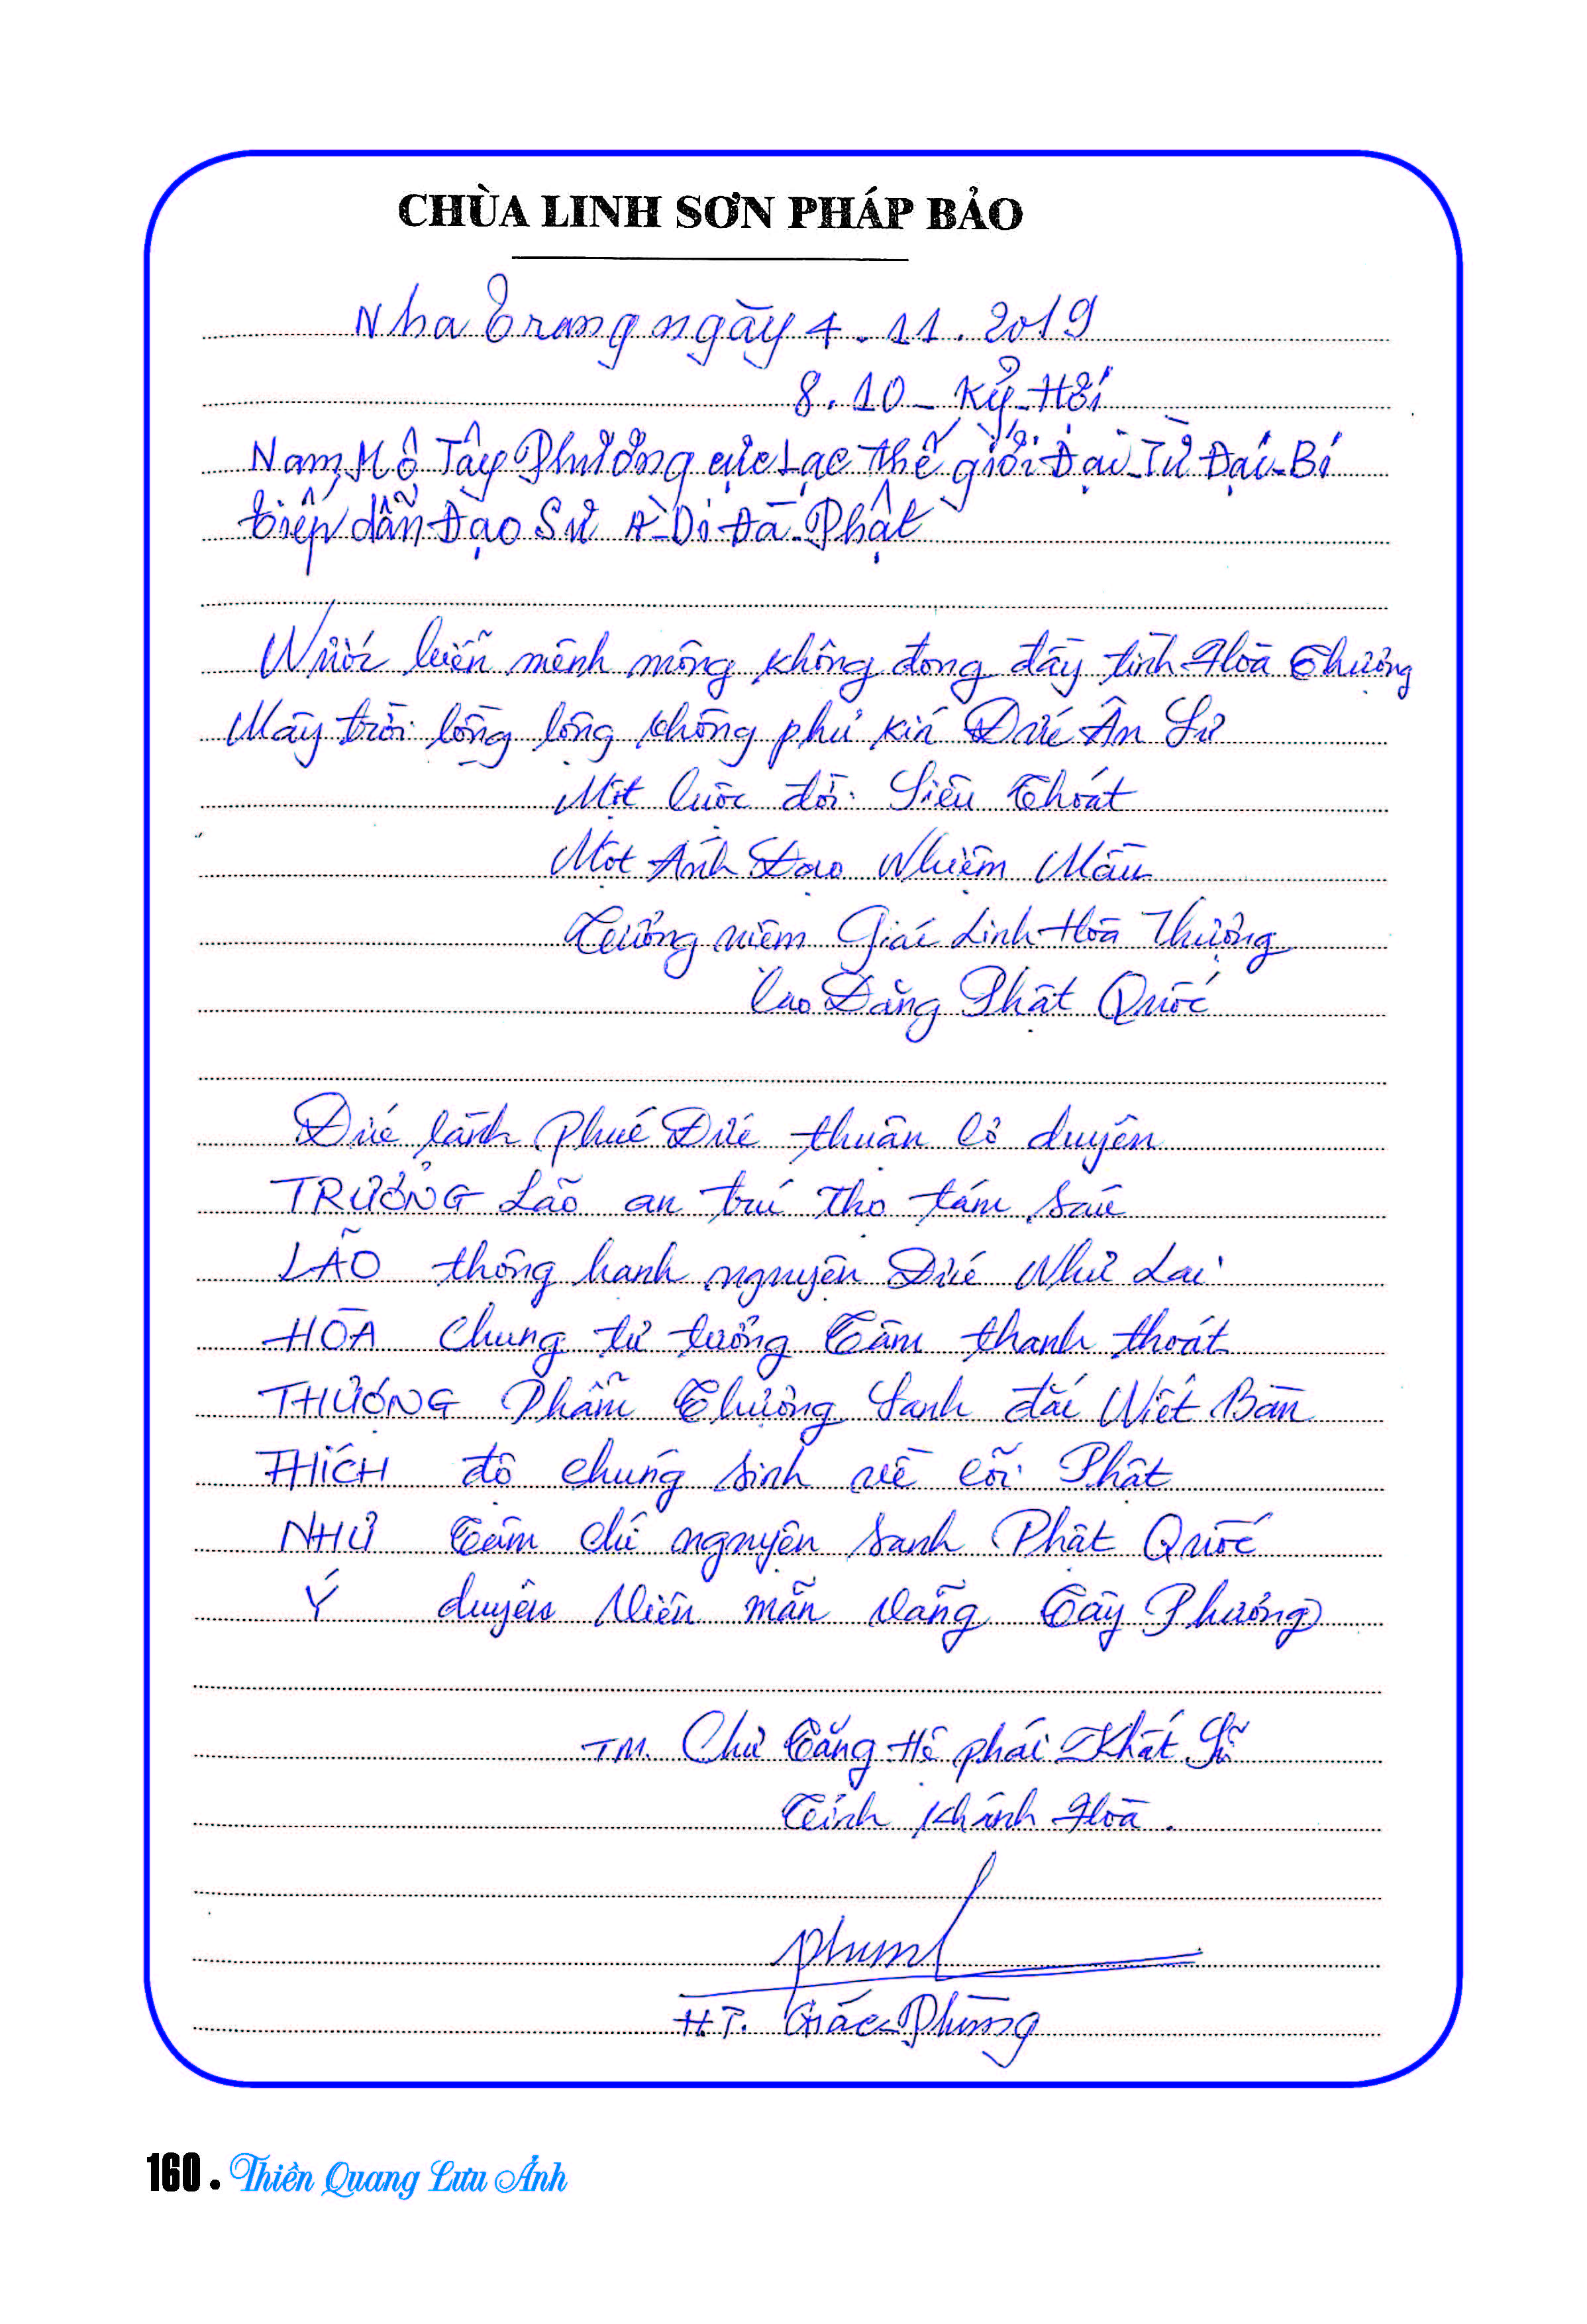 CHÙA LINH SƠN PHÁP BẢO
Nha Trang ngày 4.11.2019
8.10_Kỷ_Hợi
Nam Mô Tây Phương cực Lạc thế giới Đại_Từ Đại_Bi
tiếp dẫn Đạo Sư A_Di Đà_Phật
Nước biển mênh mông không đong đầy tình Hòa Thượng
Mây trời lồng lộng không phủ kín Đức Ân Sư
Một cuộc đời Siêu Thoát
Một Ánh Đạo Nhiệm Mầu
Tưởng niệm Giác Linh Hòa Thượng
Cao Đăng Phật Quốc
Đức lành Phúc Đức thuận cơ duyên
TRƯỞNG Lão an trú Thọ tám sáu
LÃO thông hạnh nguyện Đức Như Lai
HÒA Chung tư tưởng Tâm thanh thoát
THƯỢNG Phẩm Thượng Sanh đắc Niết Bàn
THÍCH độ chúng sinh về cõi Phật
NHƯ Tâm chí nguyện sanh Phật Quốc
Ý duyên Viên mãn vãng Tây Phương
TM. Chư Tăng Hệ phái Khất Sĩ
Tỉnh Khánh Hòa.
H.T. Giác_Phùng
160 . Thiền Quang Lưu Ảnh